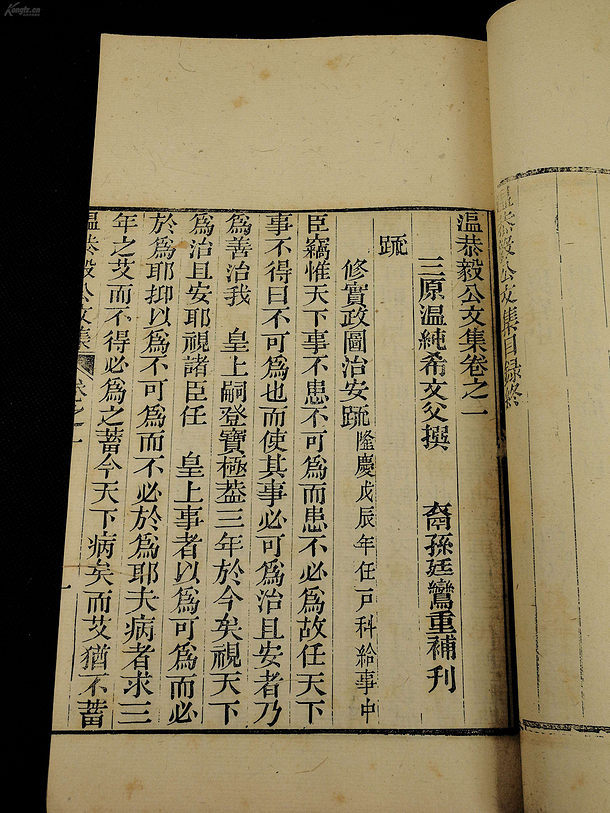 Kongfz.cn
温恭毅公文集目錄終
温恭毅公文集卷之一
三原温純希文父撰 裔孫廷鸞重補刊
疏
修實政圖治安疏隆慶戊辰年任戸科給事中
臣竊惟天下事不患不可爲而患不必爲故任天下
事不得曰不可爲也而使其事必可爲治且安者乃
爲善治我 皇上嗣登寶極葢三年於今矣視天下
爲治且安耶視諸臣任 皇上事者以爲可爲而必
於爲耶抑以爲不可爲而不必於爲耶夫病者求三
年之艾而不得必爲之蓄今天下病矣而艾猶不蓄
温恭毅公文集 卷之一 一